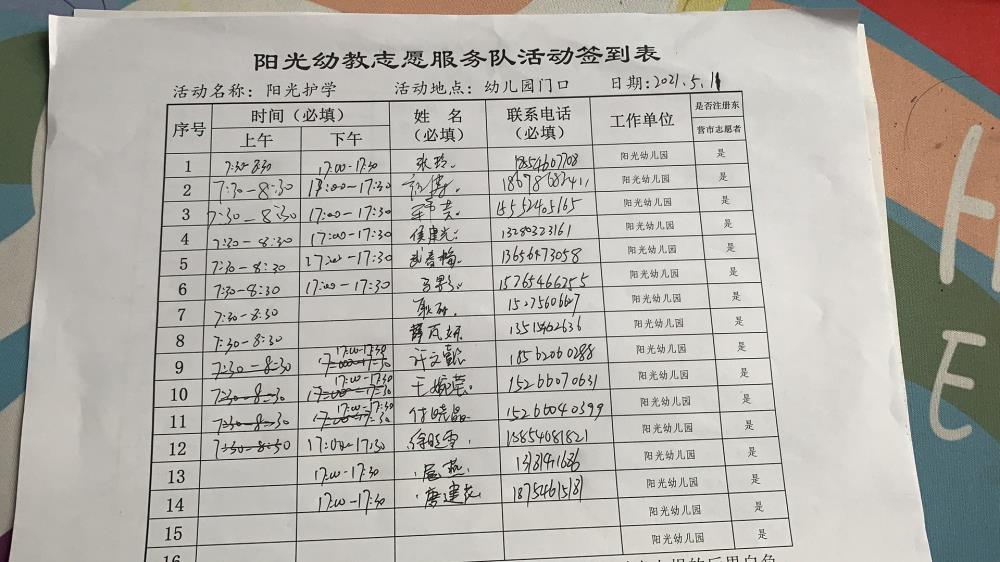 阳光幼教志愿服务队活动签到表
活动名称：阳光护学 活动地点：幼儿园门口 日期：2021.5.11
序号 时间（必填） 姓 名（必填） 联系电话（必填） 工作单位 是否注册东营市志愿者
上午 下午
1 7:30-8:30 17:00-17:30 张玲 18554607708 阳光幼儿园 是
2 7:30-8:30 17:00-17:30 阳光幼儿园 是
3 7:30-8:30 17:00-17:30 15552405165 阳光幼儿园 是
4 7:30-8:30 17:00-17:30 侯建光 13280323161 阳光幼儿园 是
5 7:30-8:30 17:00-17:30 武春梅 13656473058 阳光幼儿园 是
6 7:30-8:30 17:00-17:30 15265466255 阳光幼儿园 是
7 7:30-8:30 阳光幼儿园 是
8 7:30-8:30 阳光幼儿园 是
9 7:30-8:30 17:00-17:30 17:00-17:30 18562060288 阳光幼儿园 是
10 7:30-8:30 17:00-17:30 17:00-17:30 15266070631 阳光幼儿园 是
11 7:30-8:30 17:00-17:30 17:00-17:30 付晓晶 15266040399 阳光幼儿园 是
12 7:30-8:30 17:00-17:30 徐晓雪 13854081821 阳光幼儿园 是
13 17:00-17:30 阳光幼儿园 是
14 17:00-17:30 唐建花 18754615181 阳光幼儿园 是
15 阳光幼儿园 是
阳光幼儿园 是
H
E